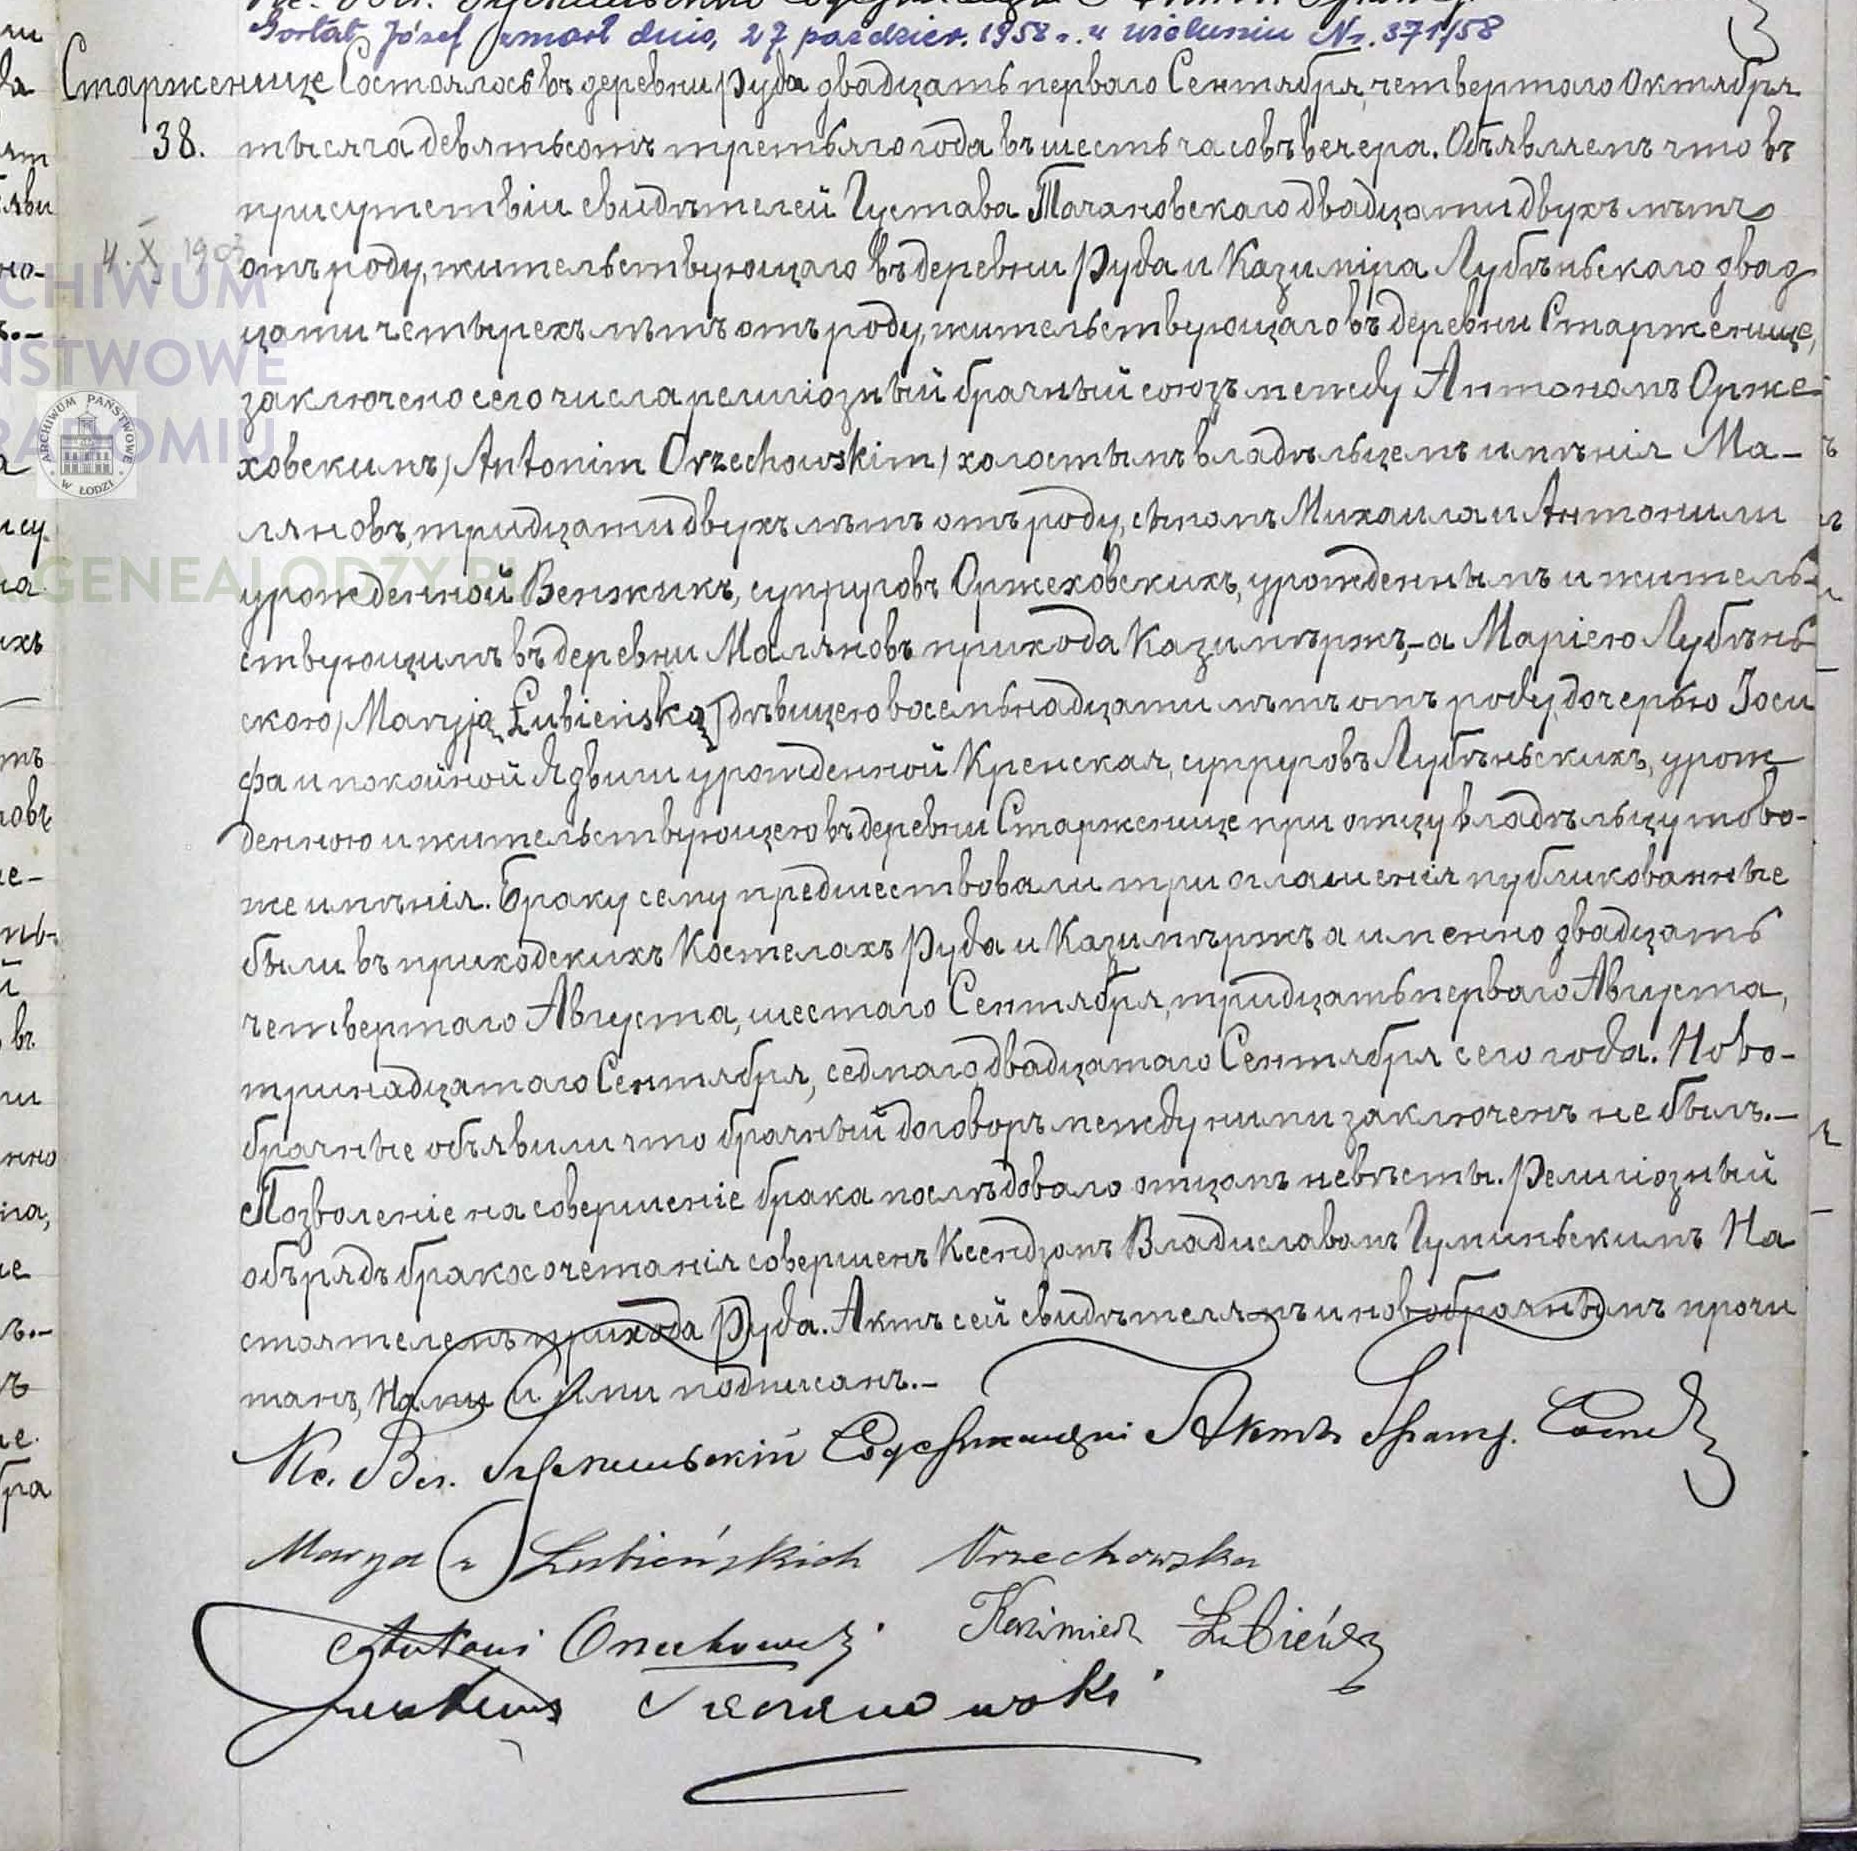 Gortat Józef zmarł dnia, 27 październ. 1958 r. w Wieluniu Nr. 371/58
Старженице Состоялось въ деревни Руда двадцать перваго Сентября, четвертаго Октября
38. тысяча девятьсотъ третьяго года въ шесть часовъ вечера. Объявляемъ что въ
присутствіи свидѣтелей Густава Тачановскаго двадцати двухъ лѣтъ
4. X 1903 отъ роду, жительствующаго въ деревни Руда и Казиміра Лубѣньскаго двад
цати четырехъ лѣтъ отъ роду, жительствующаго въ деревни Старженице,
заключено сего числа религіозный брачный союзъ между Антономъ Орже-
ховскимъ, /Antonim Orzechowskim/ холостымъ владѣльцемъ имѣнія Ма-
ляновъ, тридцати двухъ лѣтъ отъ роду, сыномъ Михаила и Антонины
урожденной Венжикъ, супруговъ Оржеховскихъ, урожденнымъ и житель-
ствующимъ въ деревни Маляновъ прихода Казимѣржъ, - а Маріею Лубѣнь
скою, /Maryją Łubieńską/ дѣвицею восемьнадцати лѣтъ отъ роду, дочерью Іоси
фа и покойной Ядвиги урожденной Кренская, супруговъ Лубѣньскихъ, урож
денною и жительствующею въ деревни Старженице при отцу владѣльцу тово-
же имѣнія. Браку сему предшествовали три оглашенія публикованные
были въ приходскихъ Костелахъ Руда и Казимѣржъ а именно двадцать
четвертаго Августа, шестаго Сентября, тридцать перваго Августа,
тринадцатаго Сентября, седмаго, двадцатаго Сентября сего года. Ново-
брачные объявили что брачный договоръ между ними заключенъ не былъ. -
Позволеніе на совершеніе брака послѣдовало отцомъ невѣсты. Религіозный
обърядъ бракосочетанія совершенъ Ксендзомъ Владиславомъ Гуминьскимъ На
стоятелемъ прихода Руда. Актъ сей свидѣтелямъ и новобрачнымъ прочи
танъ, Нами и ими подписанъ. -
Кс. Вл. Гуминьскій Содержащій Актъ Гражд. Сост.
Marya z Łubieńskich Orzechowska
Antoni Orzechowski Kazimierz Łubieński
Gustaw Taczanowski
ARCHIWUM
PAŃSTWOWE
W RADOMIU
GENEALODZY.PL
ARCHIWUM PAŃSTWOWE W ŁODZI